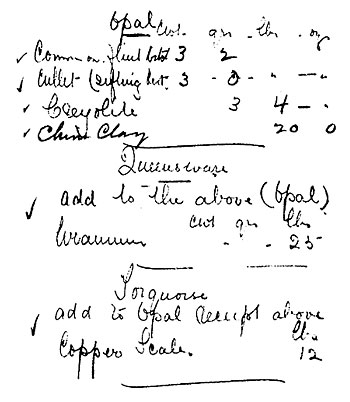 Opal
Cwt. qrs. lbs. oz
Common flint batch 3 2
Cullet 3 - 0 - " - "
Creyolite 3 4 - "
China Clay 20 0
Queensware
add to the above (Opal)
Cwt qrs lbs
Uranium - - 25
Torquoise
add to Opal Receipt above
lbs
Copper Scale. 12